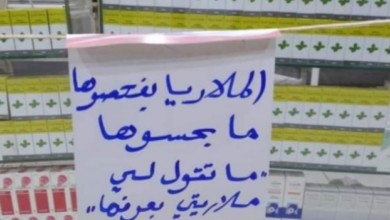 الملاريا بفتحصوها
ما بحسوها
"ما تقول لي
ملاريتي بعرفها"